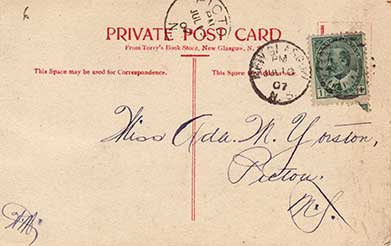 PICTOU
PM
JUL 10
07
N
PRIVATE POST CARD
From Torry's Book Store, New Glasgow, N.
This Space may be used for Correspondence.
This Space
NEW GLASGOW
PM
JUL 10
07
N.S.
1
Miss Ada. M. Yorston,
Pictou
N.S.